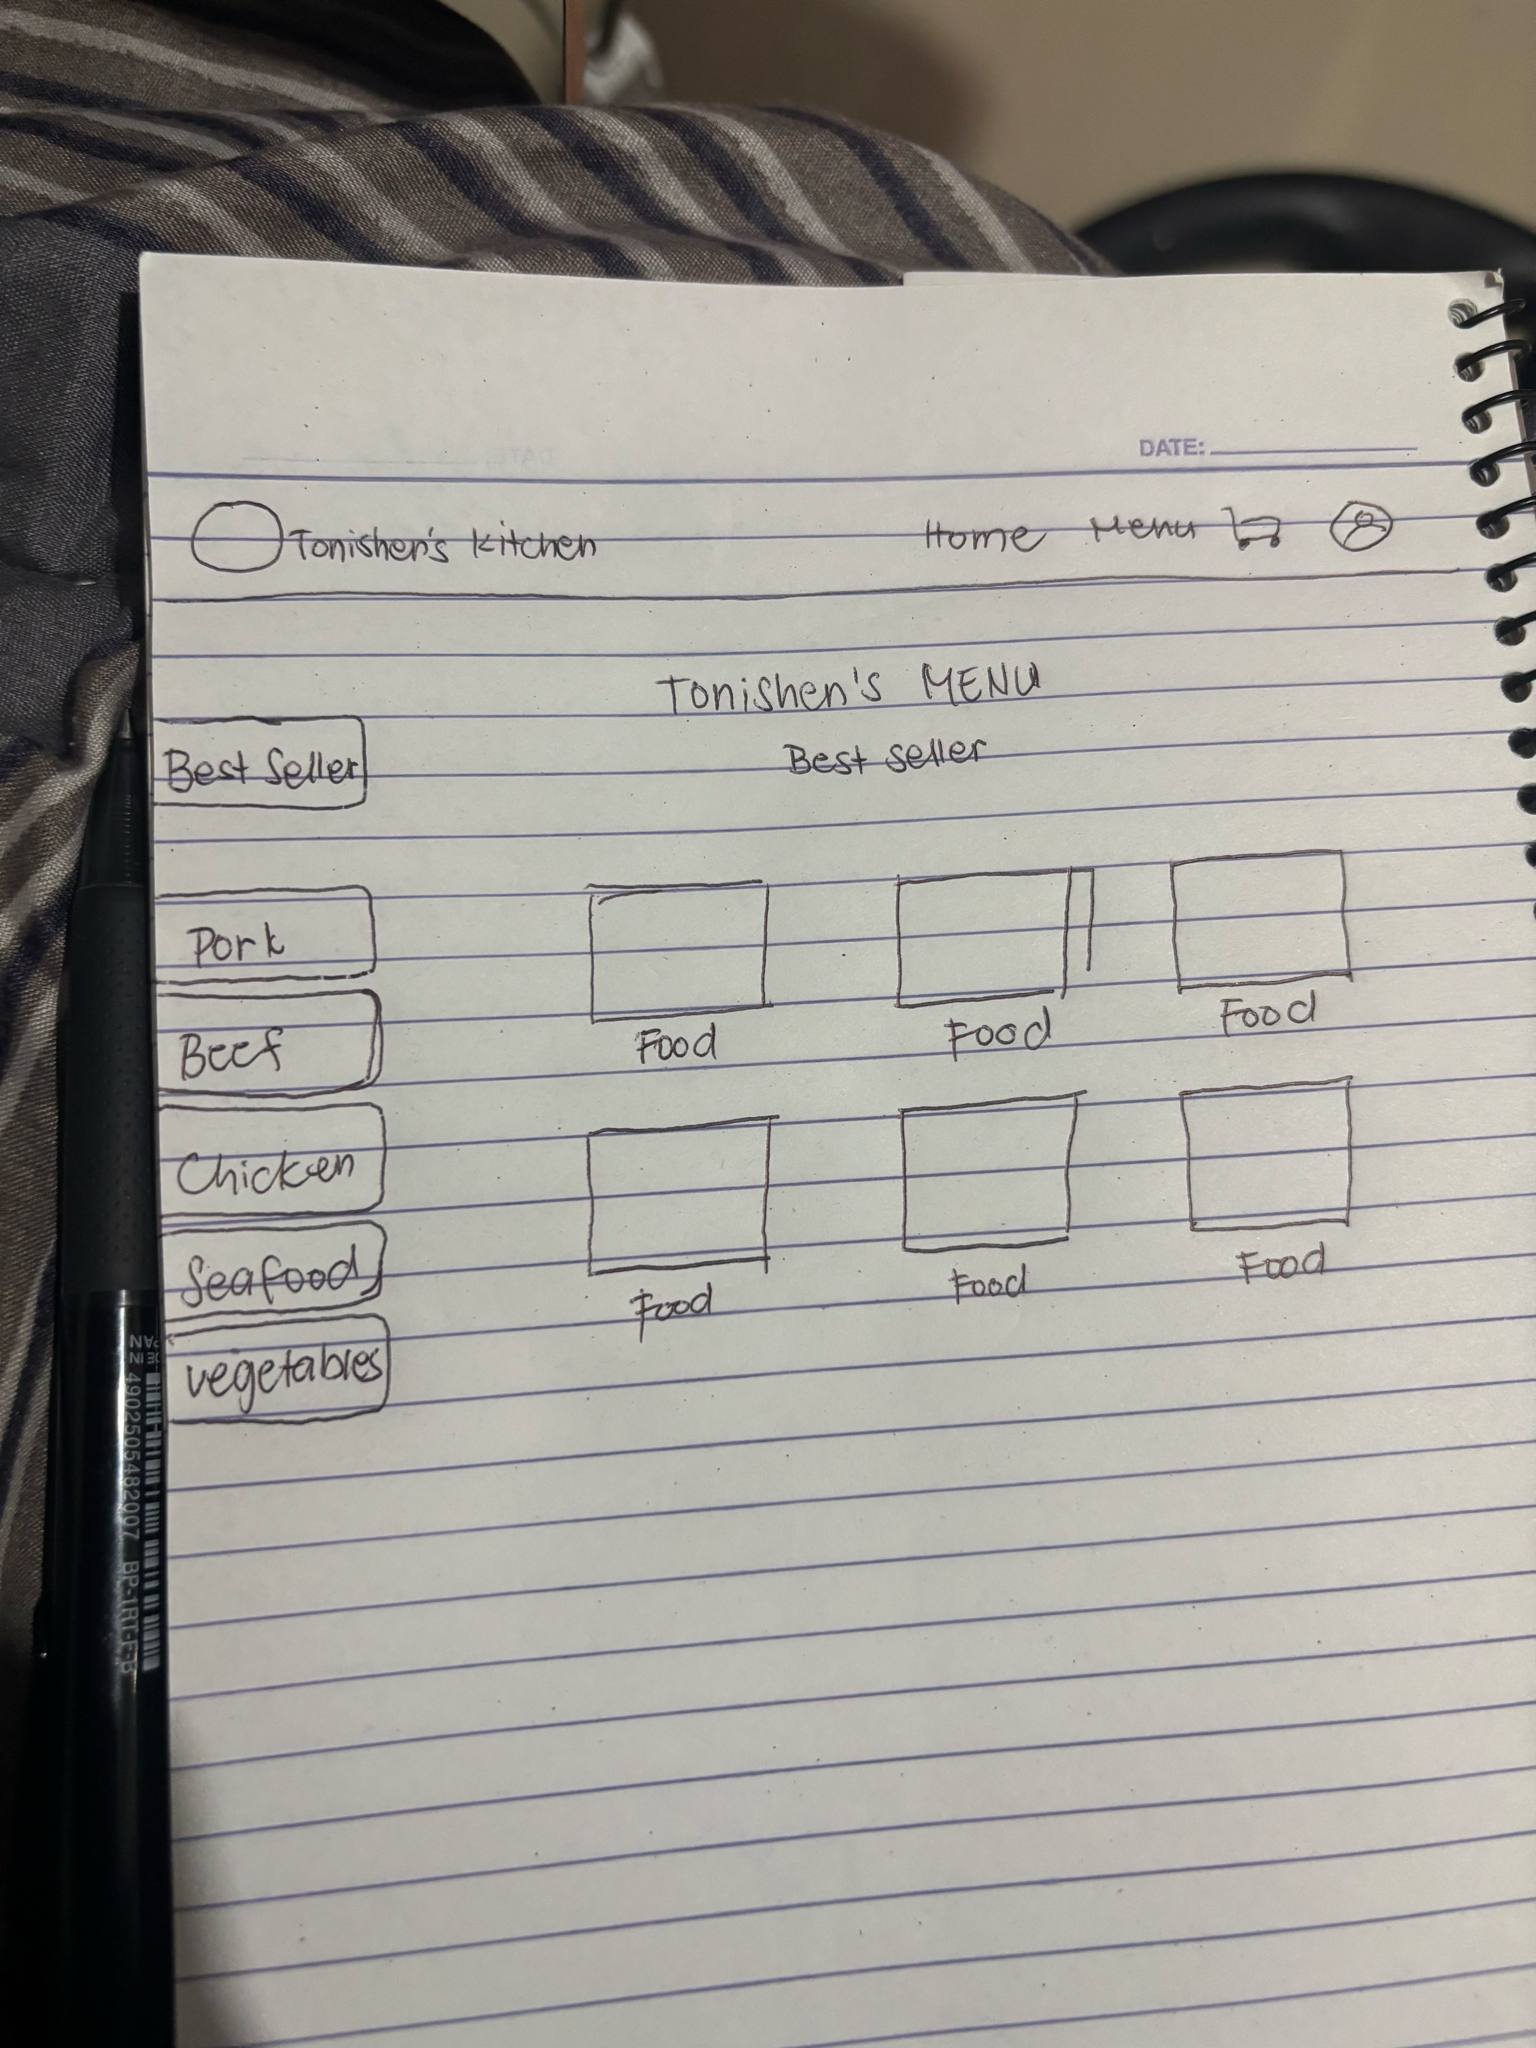 DATE:
Tonishen's Kitchen Home Menu
Tonishen's MENU
Best Seller
Best Seller
Pork
Beef
Chicken
Seafood
vegetables
Food Food Food
Food Food Food
4902505482007 BP-1RT-F-B